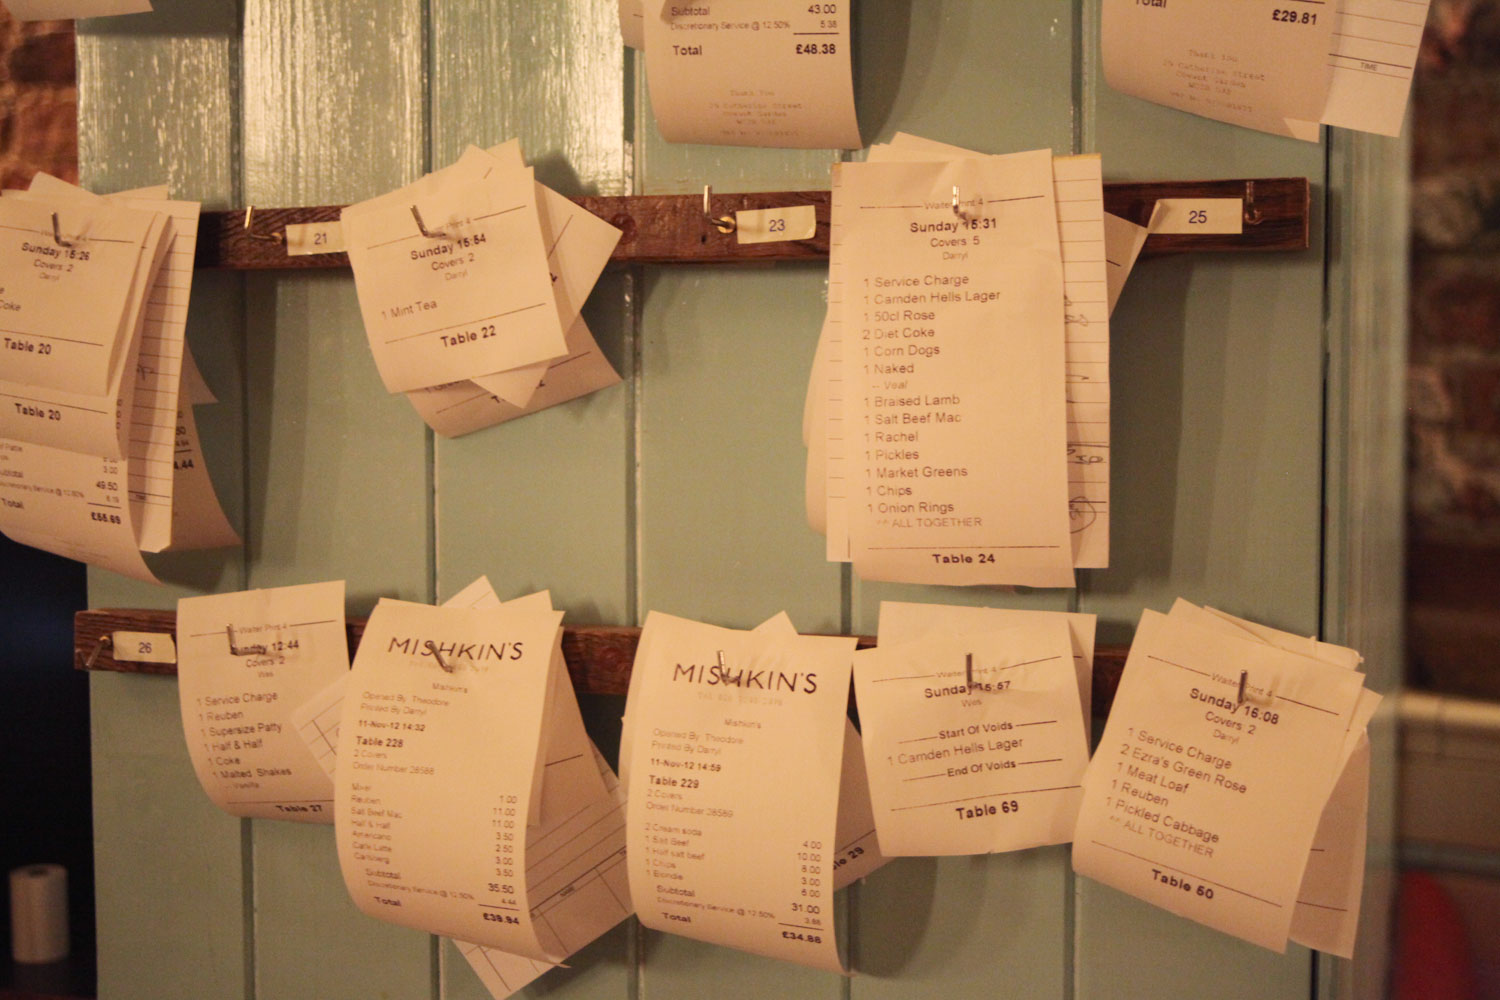 Subtotal 43.00
Discretionary Service @ 12.50% 5.38
Total £48.38
Thank You
29 Catherine Street
Covent Garden
WC2B
Total £29.81
Thank You
29 Catherine Street
Covent Garden
TIME
Sunday 15:26
Covers 2
Darryl
Coke
Table 20
Table 20
3.00
Subtotal 49.50
Discretionary Service @ 12.50% 6.19
Total £55.69
21
Sunday 15:54
Covers 2
Darryl
1 Mint Tea
Table 22
23
Waiter Print 4
Sunday 15:31
Covers 5
Darryl
1 Service Charge
1 Camden Hells Lager
1 50cl Rose
2 Diet Coke
1 Corn Dogs
1 Naked
-- Veal
1 Braised Lamb
1 Salt Beef Mac
1 Rachel
1 Pickles
1 Market Greens
1 Chips
1 Onion Rings
^^ ALL TOGETHER
Table 24
25
26
Waiter Print 4
Sunday 12:44
Covers 2
Wes
1 Service Charge
1 Reuben
1 Supersize Patty
1 Half & Half
1 Coke
1 Malted Shakes
Vanilla
Table 27
MISHKIN'S
Mishkin's
Opened By Theodore
Printed By Darryl
11-Nov-12 14:32
Table 228
2 Covers
Order Number 28588
Mixer 1.00
Reuben 11.00
Salt Beef Mac 11.00
Half & Half 3.50
Americano 2.50
Cafe Latte 3.00
Carlsberg 3.50
Subtotal 35.50
Discretionary Service @ 12.50% 4.44
Total £39.94
MISHKIN'S
Mishkin's
Opened By Theodore
Printed By Darryl
11-Nov-12 14:59
Table 229
2 Covers
Order Number 28589
2 Cream soda 4.00
1 Salt Beef 10.00
1 Half salt beef 8.00
1 Chips 3.00
1 Blondie 6.00
Subtotal 31.00
Discretionary Service @ 12.50% 3.88
Total £34.88
Waiter Print 4
Sunday 15:57
Wes
Start Of Voids
1 Camden Hells Lager
End Of Voids
Table 69
Waiter Print 4
Sunday 16:08
Covers 2
Darryl
1 Service Charge
2 Ezra's Green Rose
1 Meat Loaf
1 Reuben
1 Pickled Cabbage
^^ ALL TOGETHER
Table 60